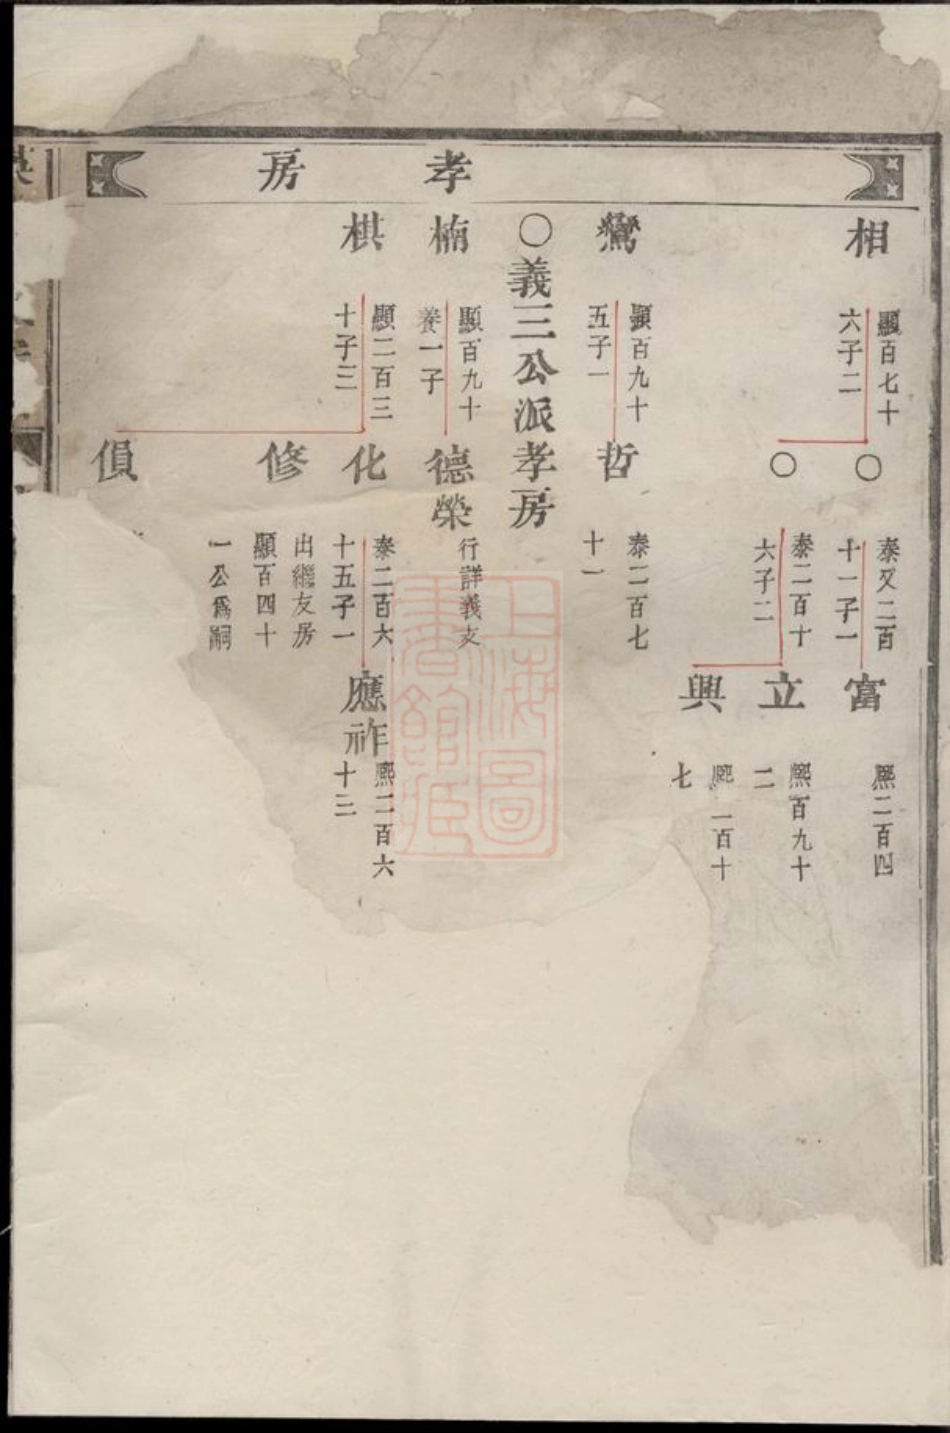 孝房
相
顯百七十
六子二
○
泰又二百
十一子一
富
熈二百四
○
泰二百十
六子二
立
熈百九十
二
興
熈二百十
七
鸞
顯百九十
五子一
哲
泰二百七
十一
○義三公派孝房
楠
顯百九十
養一子
德榮
行詳義支
棋
顯二百三
十子三
化
泰二百六
十五子一
應祚
熈二百六
十三
修
出繼友房
顯百四十
一公爲嗣
上海圖書館藏